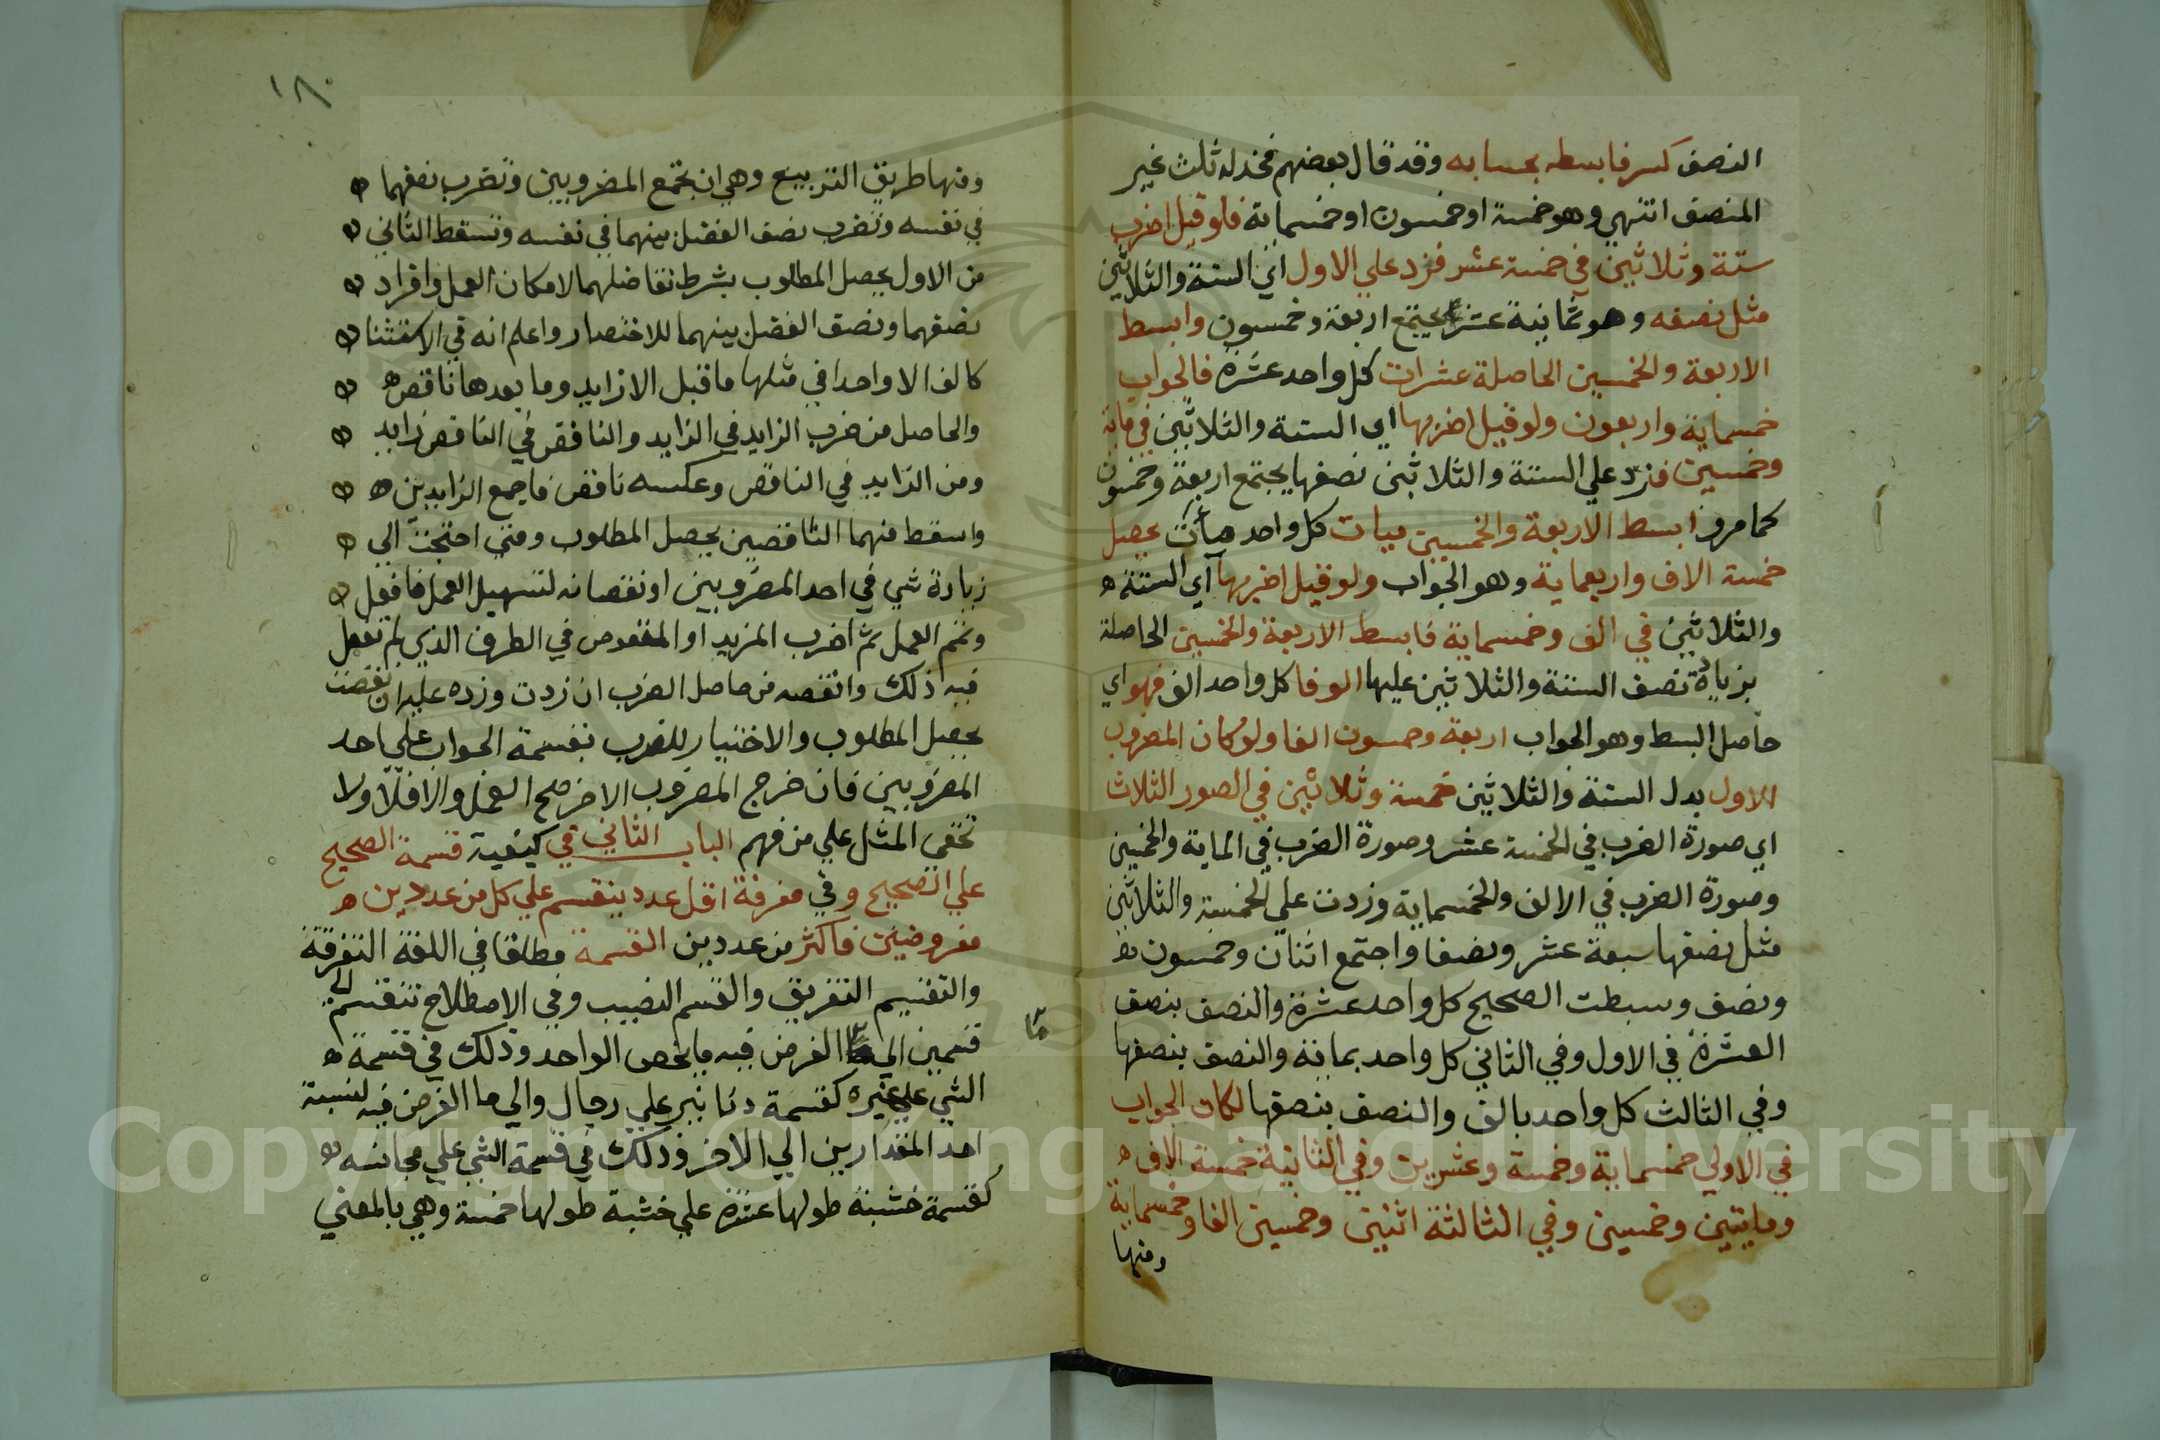 النصف كسر فابسطه بحسابه وقد قال بعضهم فخذ له ثلث غير
المنصف انتهي وهو خمسة او خمسون او خمسماية فلو قيل اضرب
ستة وثلاثين في خمسة عشر فزد علي الاول اي الستة والثلاثين
مثل نصفه وهو ثمانية عشر يجتمع اربعة وخمسون وابسط
الاربعة والخمسين الحاصلة عشرات كل واحد عشرة فالجواب
خمسماية واربعون ولو قيل اضربها اي الستة والثلاثين في ماية
وخمسين فزد علي الستة والثلاثين نصفها يجتمع اربعة وخمسون
كما مر وابسط الاربعة والخمسين ميات كل واحد مأة يحصل
خمسة الاف واربعماية وهو الجواب ولو قيل اضربها اي الستة
والثلاثين في الف وخمسماية فابسط الاربعة والخمسين الحاصلة
بزيادة نصف الستة والثلاثين عليها الوفا كل واحد الف فهو اي
حاصل البسط وهو الجواب اربعة وخمسون الفا ولو كان المضروب
الاول بدل الستة والثلاثين خمسة وثلاثين في الصور الثلاث
اي صورة الضرب في الخمسة عشر وصورة الضرب في الماية والخمسين
وصورة الضرب في الالف والخمسماية وزدت علي الخمسة والثلاثين
مثل نصفها سبعة عشر ونصفا واجتمع اثنان وخمسون
ونصف وبسطت الصحيح كل واحد عشرة والنصف بنصف
العشرة في الاول وفي الثاني كل واحد بماية والنصف بنصفها
وفي الثالث كل واحد بالف والنصف بنصفها لكان الجواب
في الاولي خمسماية وخمسة وعشرين وفي الثانية خمسة الاف
ومايتين وخمسين وفي الثالثة اثنين وخمسين الفا وخمسماية
ومنها
١٨٠
ومنها طريق التربيع وهي ان تجمع المضروبين وتضرب نصفهما
في نفسه وتضرب نصف الفضل بينهما في نفسه وتسقط الثاني
من الاول يحصل المطلوب بشرط تفاضلهما لامكان العمل وافراد
نصفهما ونصف الفضل بينهما للاختصار واعلم انه في الاستثنا
كالف الا واحدا في مثلها ما قبل الا زايد وما بعدها ناقص
والحاصل من ضرب الزايد في الزايد والناقص في الناقص زايد
ومن الزايد في الناقص وعكسه ناقص فاجمع الزايدين
واسقط منهما الناقصين يحصل المطلوب ومتي احتجت الي
زيادة شي في احد المضروبين او نقصانه لتسهيل العمل فافعل
وتمم العمل ثم اضرب المزيد او المنقوص في الطرف الذي لم تفعل
فيه ذلك وانقصه من حاصل الضرب ان زدت وزده عليه ان نقصت
يحصل المطلوب والاختبار للضرب بقسمة الجواب علي احد
المضروبين فان خرج المضروب الاخر صح العمل والا فلا ولا
تخفي المثل علي من فهم الباب الثاني في كيفية قسمة الصحيح
علي الصحيح وفي معرفة اقل عدد ينقسم علي كل من عددين
مفروضين فاكثر من عددين القسمة مطلقا في اللغة التفرقة
والتقسيم التفريق والقسم النصيب وفي الاصطلاح تنقسم الي
قسمين الي ما الغرض فيه ما يخص الواحد وذلك في قسمة
ما
الشي علي غيره كقسمة دنانير علي رجال والي ما الغرض فيه لنسبة
احد المقدارين الي الاخر وذلك في قسمة الشي علي مجانسه
كقسمة خشبة طولها عشرة علي خشبة طولها خمسة وهي بالمعني
Copyright © King Saud University